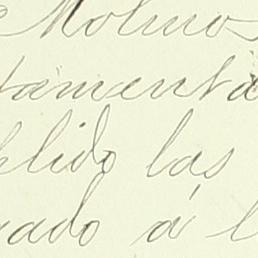 Molino
tamenta
lido las
uado á l